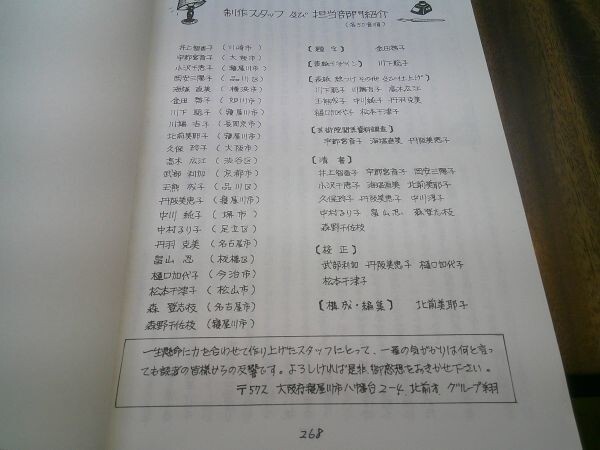 制作スタッフ及び担当部門紹介
(五十音順)
井上智香子 (川崎市)
宇都宮音子 (大阪市)
小沢千恵子 (寝屋川市)
岡安三陽子 (品川区)
海塩直美 (横浜市)
金田啓子 (旭川市)
川下聡子 (寝屋川市)
川端若子 (長岡京市)
北前美耶子 (寝屋川市)
久保玲子 (大阪市)
高木広江 (渋谷区)
武部利加 (京都市)
玉熊成子 (品川区)
丹阪美恵子 (寝屋川市)
中川純子 (堺市)
中村るり子 (足立区)
丹羽克美 (名古屋市)
畠山忍 (板橋区)
樋口加代子 (今治市)
松本千津子 (松山市)
森登志枝 (名古屋市)
森野千佐枝 (寝屋川市)
【題字】 金田啓子
【表紙デザイン】 川下聡子
【表紙絵つけその他及び仕上げ】
川下聡子 川端若子 高木広江
玉熊成子 中川純子 丹羽克美
樋口加代子 松本千津子
宇都宮音子 海塩直美 丹阪美恵子
【清書】
井上智香子 宇都宮音子 岡安三陽子
小沢千恵子 海塩直美 北前美耶子
久保玲子 丹阪美恵子 中川淳子
中村るり子 畠山忍 森登志枝
森野千佐枝
【校正】
武部利加 丹阪美恵子 樋口加代子
松本千津子
【構成・編集】 北前美耶子
一生懸命に力を合わせて作り上げたスタッフにとって、一番の気がかりは何と言っ
ても読者の皆様からの反響です。よろしければ是非御感想をおきかせ下さい。
〒572 大阪府寝屋川市八幡台2-4 北前方 グループ翔
268